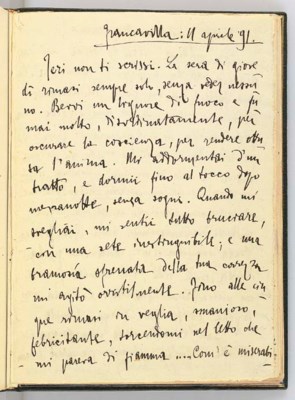 Francavilla: 11 aprile 91.
Ieri non ti scrissi. La sera di giove
di rimasi sempre solo, senza veder nessu
no. Bevvi un liquore di fuoco e fu
mai molto, disordinatamente, per
oscurare la coscienza, per rendere ottu
sa l'anima. Mi addormentai d'un
tratto, e dormii fino al tocco dopo
mezzanotte, senza sogni. Quando mi
svegliai, mi sentii tutto bruciare,
con una sete inestinguibile; e una
bramosia sfrenata della tua carezza
mi agitò orribilmente. Fino alle cin
que rimasi in veglia, smanioso,
febbricitante, torcendomi nel letto che
mi pareva di fiamma .... Com'è miserabi